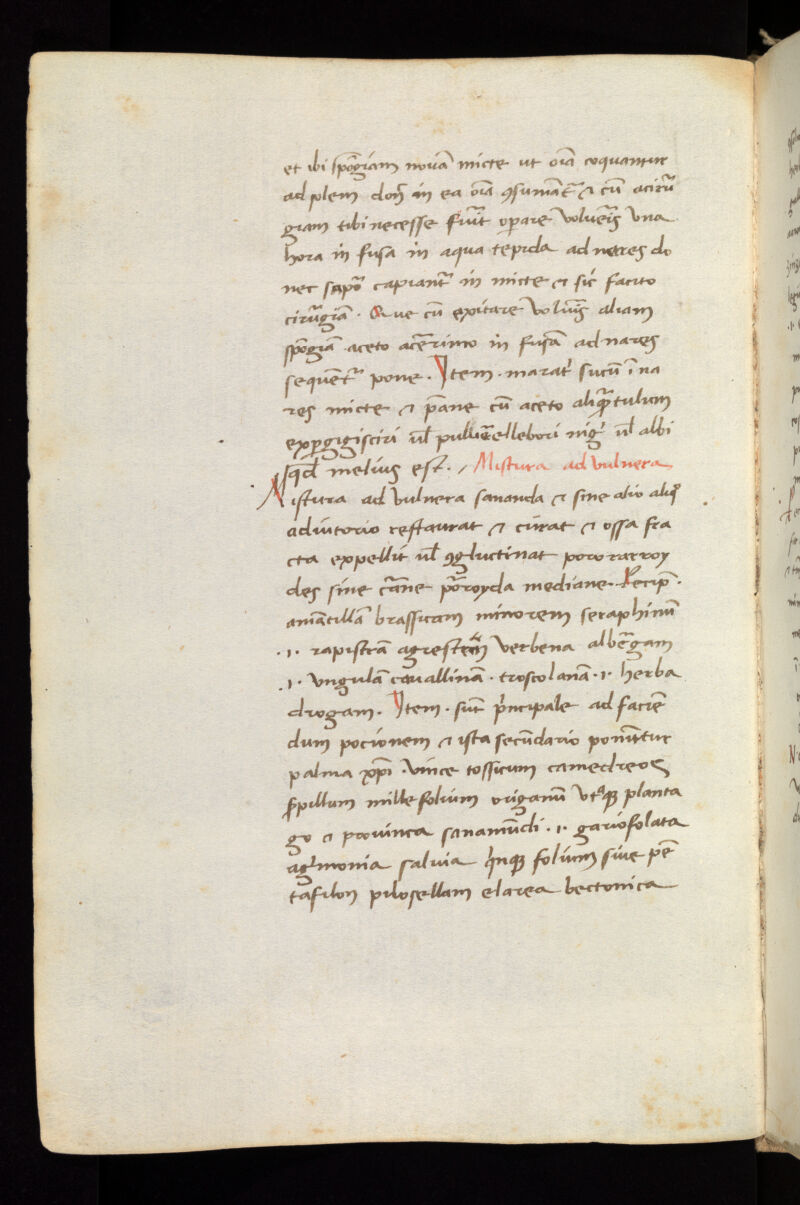 et ibi spõgiam nouã micte ut oīa coquantur
ad solem donę in ea oīa ꝯsumãt̃ ⁊ cũ aciru
giam tibi necesse fuit̃ oꝑare uoluẽis una
hora in fusa in aqua tepida ad nares do
nec sapõ capiant̃ in micte ⁊ sic facito
cirugiã . Que cũ exitare uoluis̃ aliam
spõgiã aceto acẽrimo in fusã ad nares
sequent̃ pone . Item . marat sucũ ĩ na
res micte ⁊ p̃ane cũ aceto aliq̃ntulum
exꝑgigisciri ul̃ pulluẽ ellebori nig̃ ul̃ albi
qd̃ melius est . Mistura ad uulnera
Mistura ad uulnera sananda ⁊ sine alio aliq̃
adiutorio restaurat ⁊ curat ⁊ ossa fra
cta expellit ul̃ ꝯgluctinat
des sine cãne mediane . Recip̃ .
amãtillã brassicam minorem seraphinũ
.i. rapistrã agrestem uerbena albẽgam
.i. ungulã cauallinã . troscolanã .i. herba
drogam . Item . sũt p̃ncipale ad faciẽ
dum pocionem ⁊ ista secũdario ponũtur
palma xp̃i . uince tossicum camedreos
s̃pillum millefolium origanũ utr̃qꝫ planta
go ⁊ prouinca sanamũdi .i. gariofolata
ag̃monia saluia q̃nqꝫ folium siue pẽ
tafilon pilosellam elarea bectonica